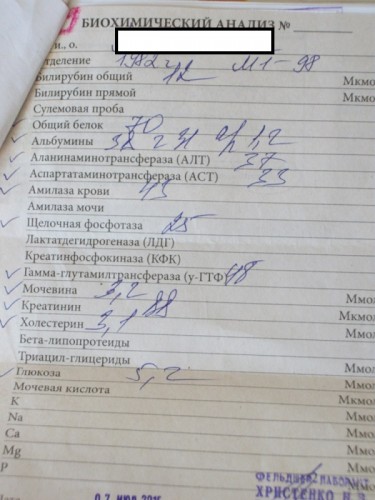 БИОХИМИЧЕСКИЙ АНАЛИЗ № ______
и., о.
тделение 1982
Билирубин общий 12 Мкмо
Билирубин прямой Мкмол
Сулемовая проба
Общий белок 70
Альбумины 38
Аланинаминотрансфераза (АЛТ) 37
Аспартатаминотрансфераза (АСТ) 33
Амилаза крови 43
Амилаза мочи
Щелочная фосфотаза 25
Лактатдегидрогеназа (ЛДГ)
Креатинфосфокиназа (КФК)
Гамма-глутамилтрансфераза (у-ГТФ) 48
Мочевина 3,2 Ммол
Креатинин 88 Мкмо
Холестерин 3,1 Ммол
Бета-липопротеиды
Триацил-глицериды Ммол
Глюкоза 5,2 Ммол
Мочевая кислота Ммол
К Мкмол
Na Ммол
Ca Ммол
Mg Ммол
P Ммол
ФЕЛЬДШЕР ЛАБОРАНТ
ХРИСТЕНКО